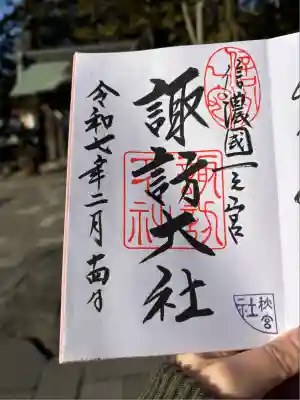 信濃國一之宮
諏訪大社
令和七年二月十四日
秋宮
社